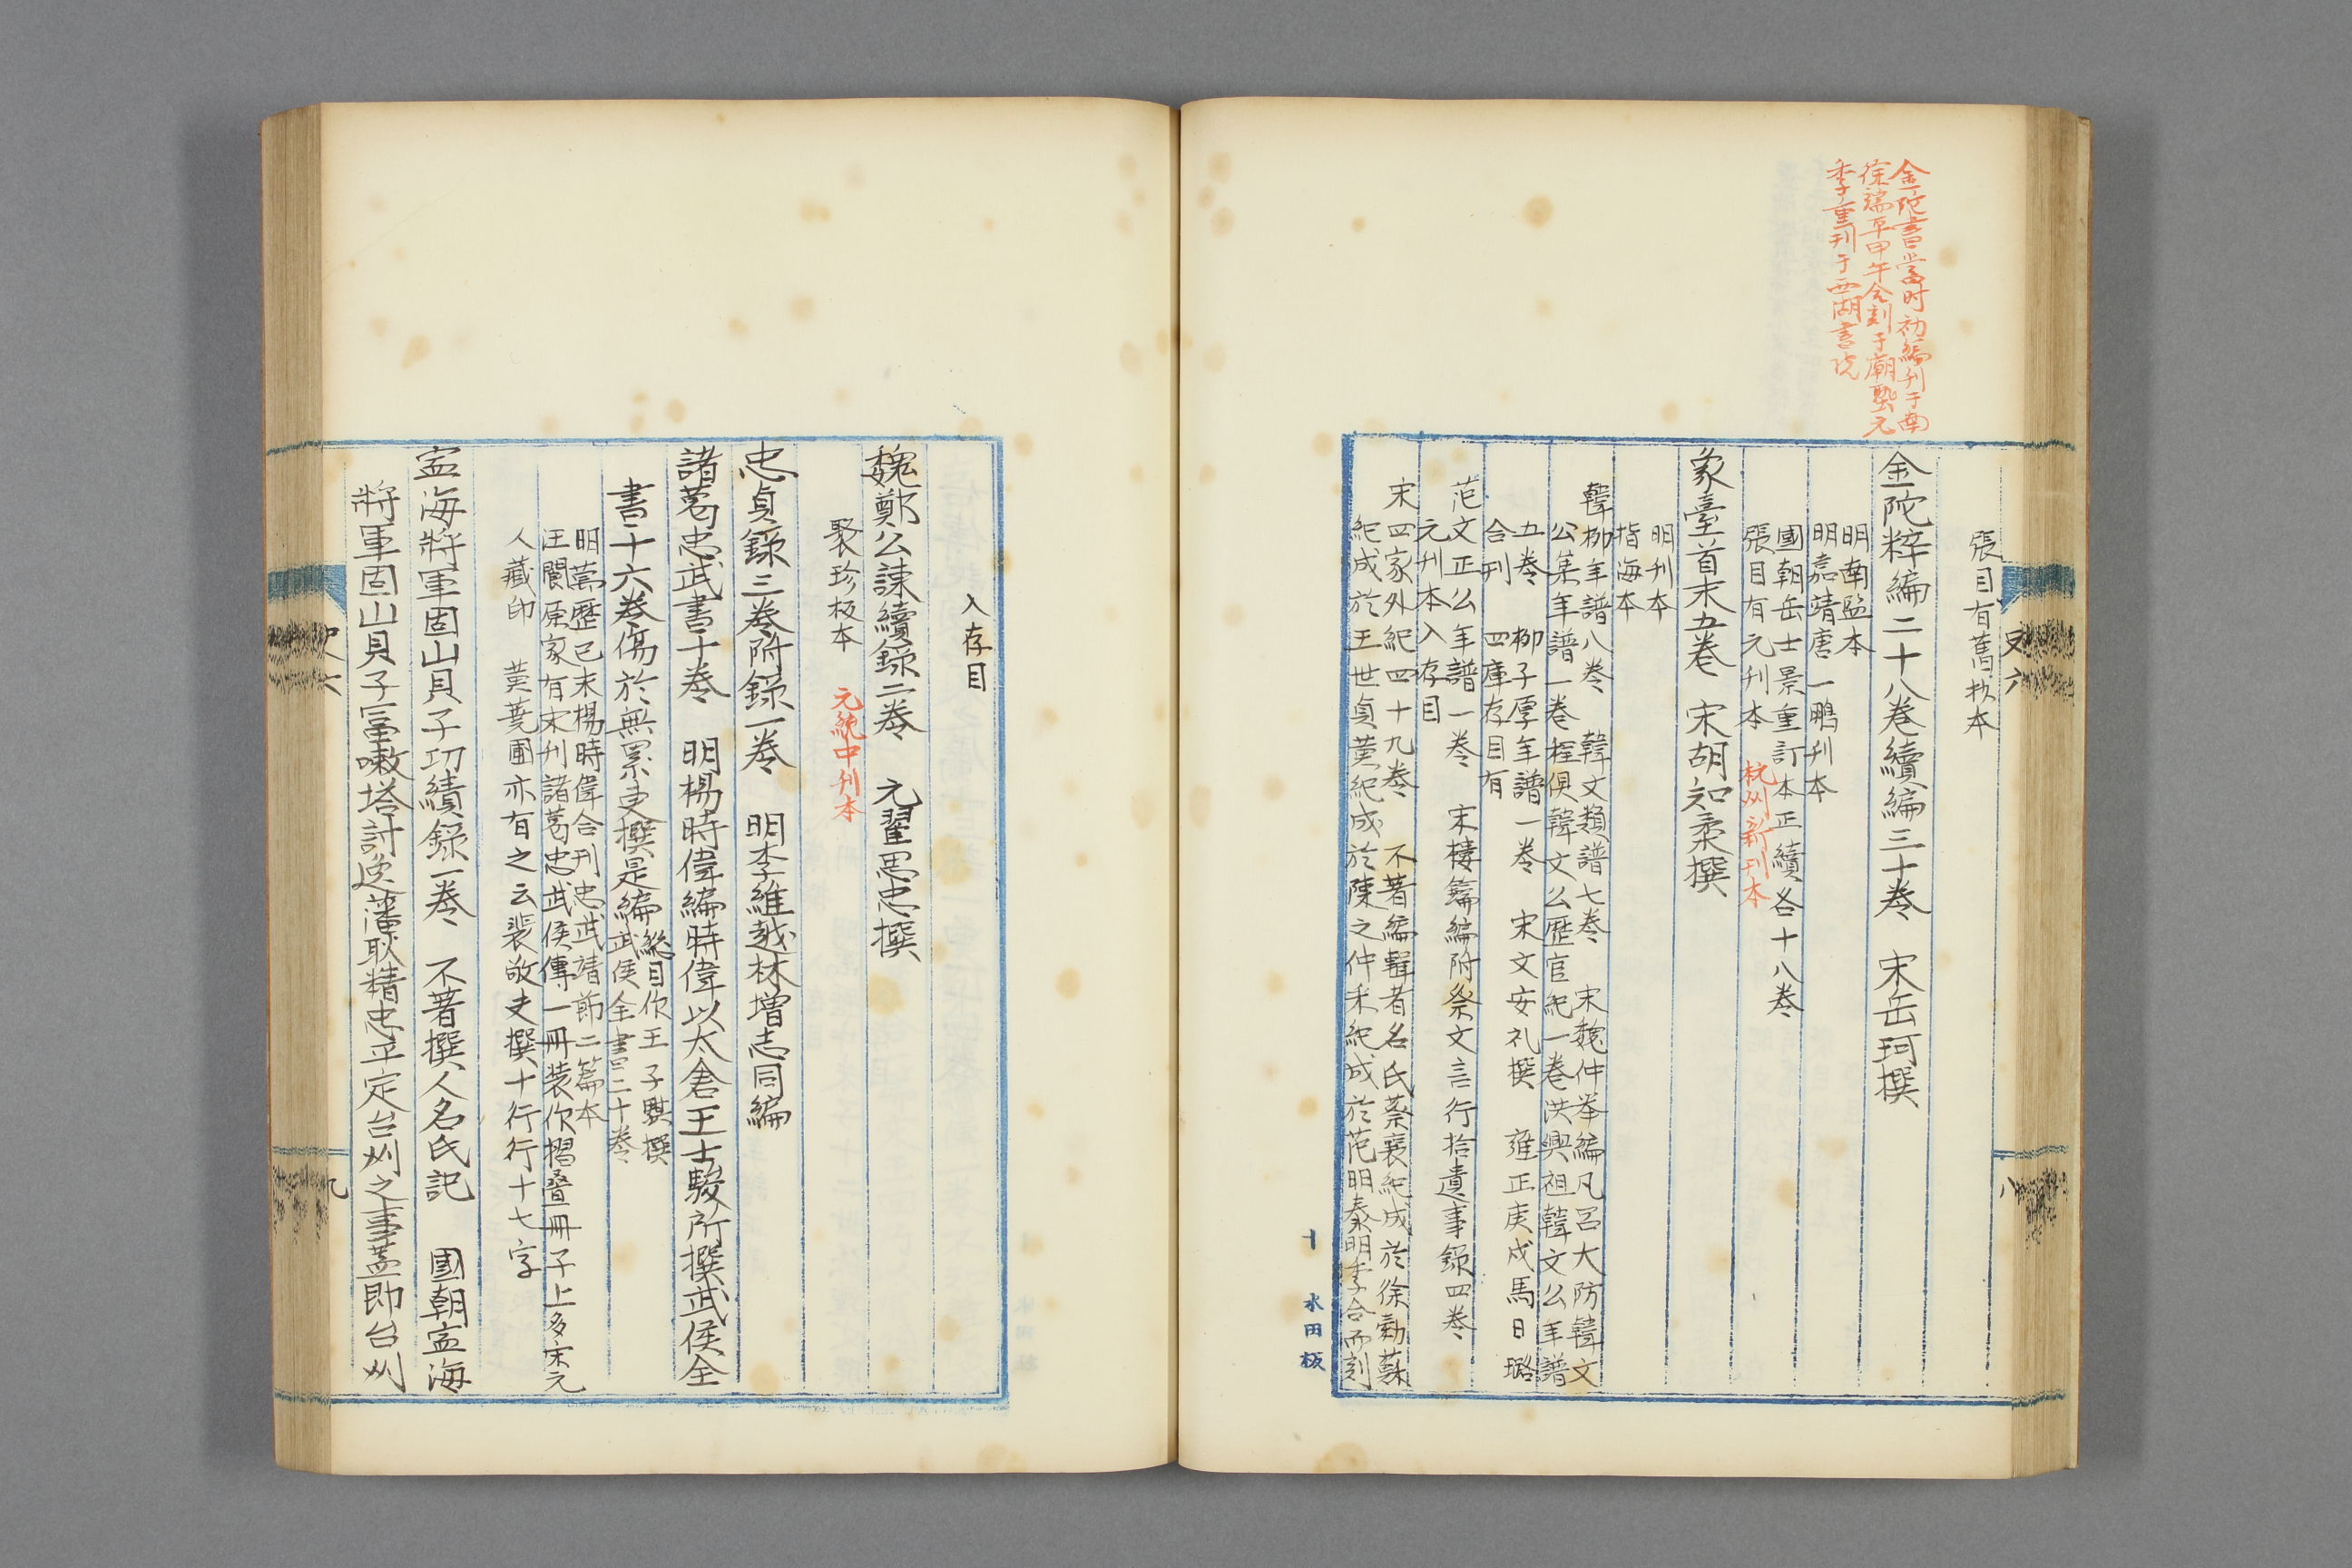 金陀書當時初編刊于南
徐端平甲午合刻于廟塾元
季重刊于西湖書院
張目有舊抄本
金陀粹編二十八卷續編三十卷　宋岳珂撰
明南監本
明嘉靖唐一鵬刊本
國朝岳士景重訂本正續各十八卷
張目有元刊本　杭州新刊本
象臺首末五卷　宋胡知柔撰
明刊本
指海本
韓柳年譜八卷　韓文類譜七卷　宋魏仲举編凡呂大防韓文
公集年譜一卷程俱韓文公歷官紀一卷洪興祖韓文公年譜
五卷　柳子厚年譜一卷　宋文安礼撰　雍正庚戌馬曰璐
合刊　四庫存目有
范文正公年譜一卷　宋樓鑰編附祭文言行拾遺事錄四卷
元刊本入存目
宋四家外紀四十九卷　不著編輯者名氏蔡襄紀成於徐𤊹蘇
紀成於王世貞黄紀成於陳之伸米紀成於范明泰明季合而刻
史六
八
十　水田板
入存目
魏鄭公諫續錄二卷　元翟思忠撰
聚珍板本　元統中刊本
忠貞錄三卷附錄一卷　明李維越林增志同編
諸葛忠武書十卷　明楊時偉編時偉以太倉王士騏所撰武侯全
書二十六卷傷於無累更撰是編總目作王子騏撰
武侯全書二十卷
明萬歷己未楊時偉合刊忠武靖節二篇本
王閬原家有宋刊諸葛忠武侯傳一冊裝作摺疊冊子上多宋元
人藏印　黄蕘圃亦有之云裴敬夫撰十行行十七字
寍海將軍固山貝子功績錄一卷　不著撰人名氏記　國朝寍海
將軍固山貝子富嗽塔討逆藩耿精忠平定台州之事蓋即台州
史六
九